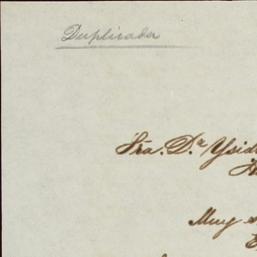 Duplicada
Sra. D.ª Ysid
Muy